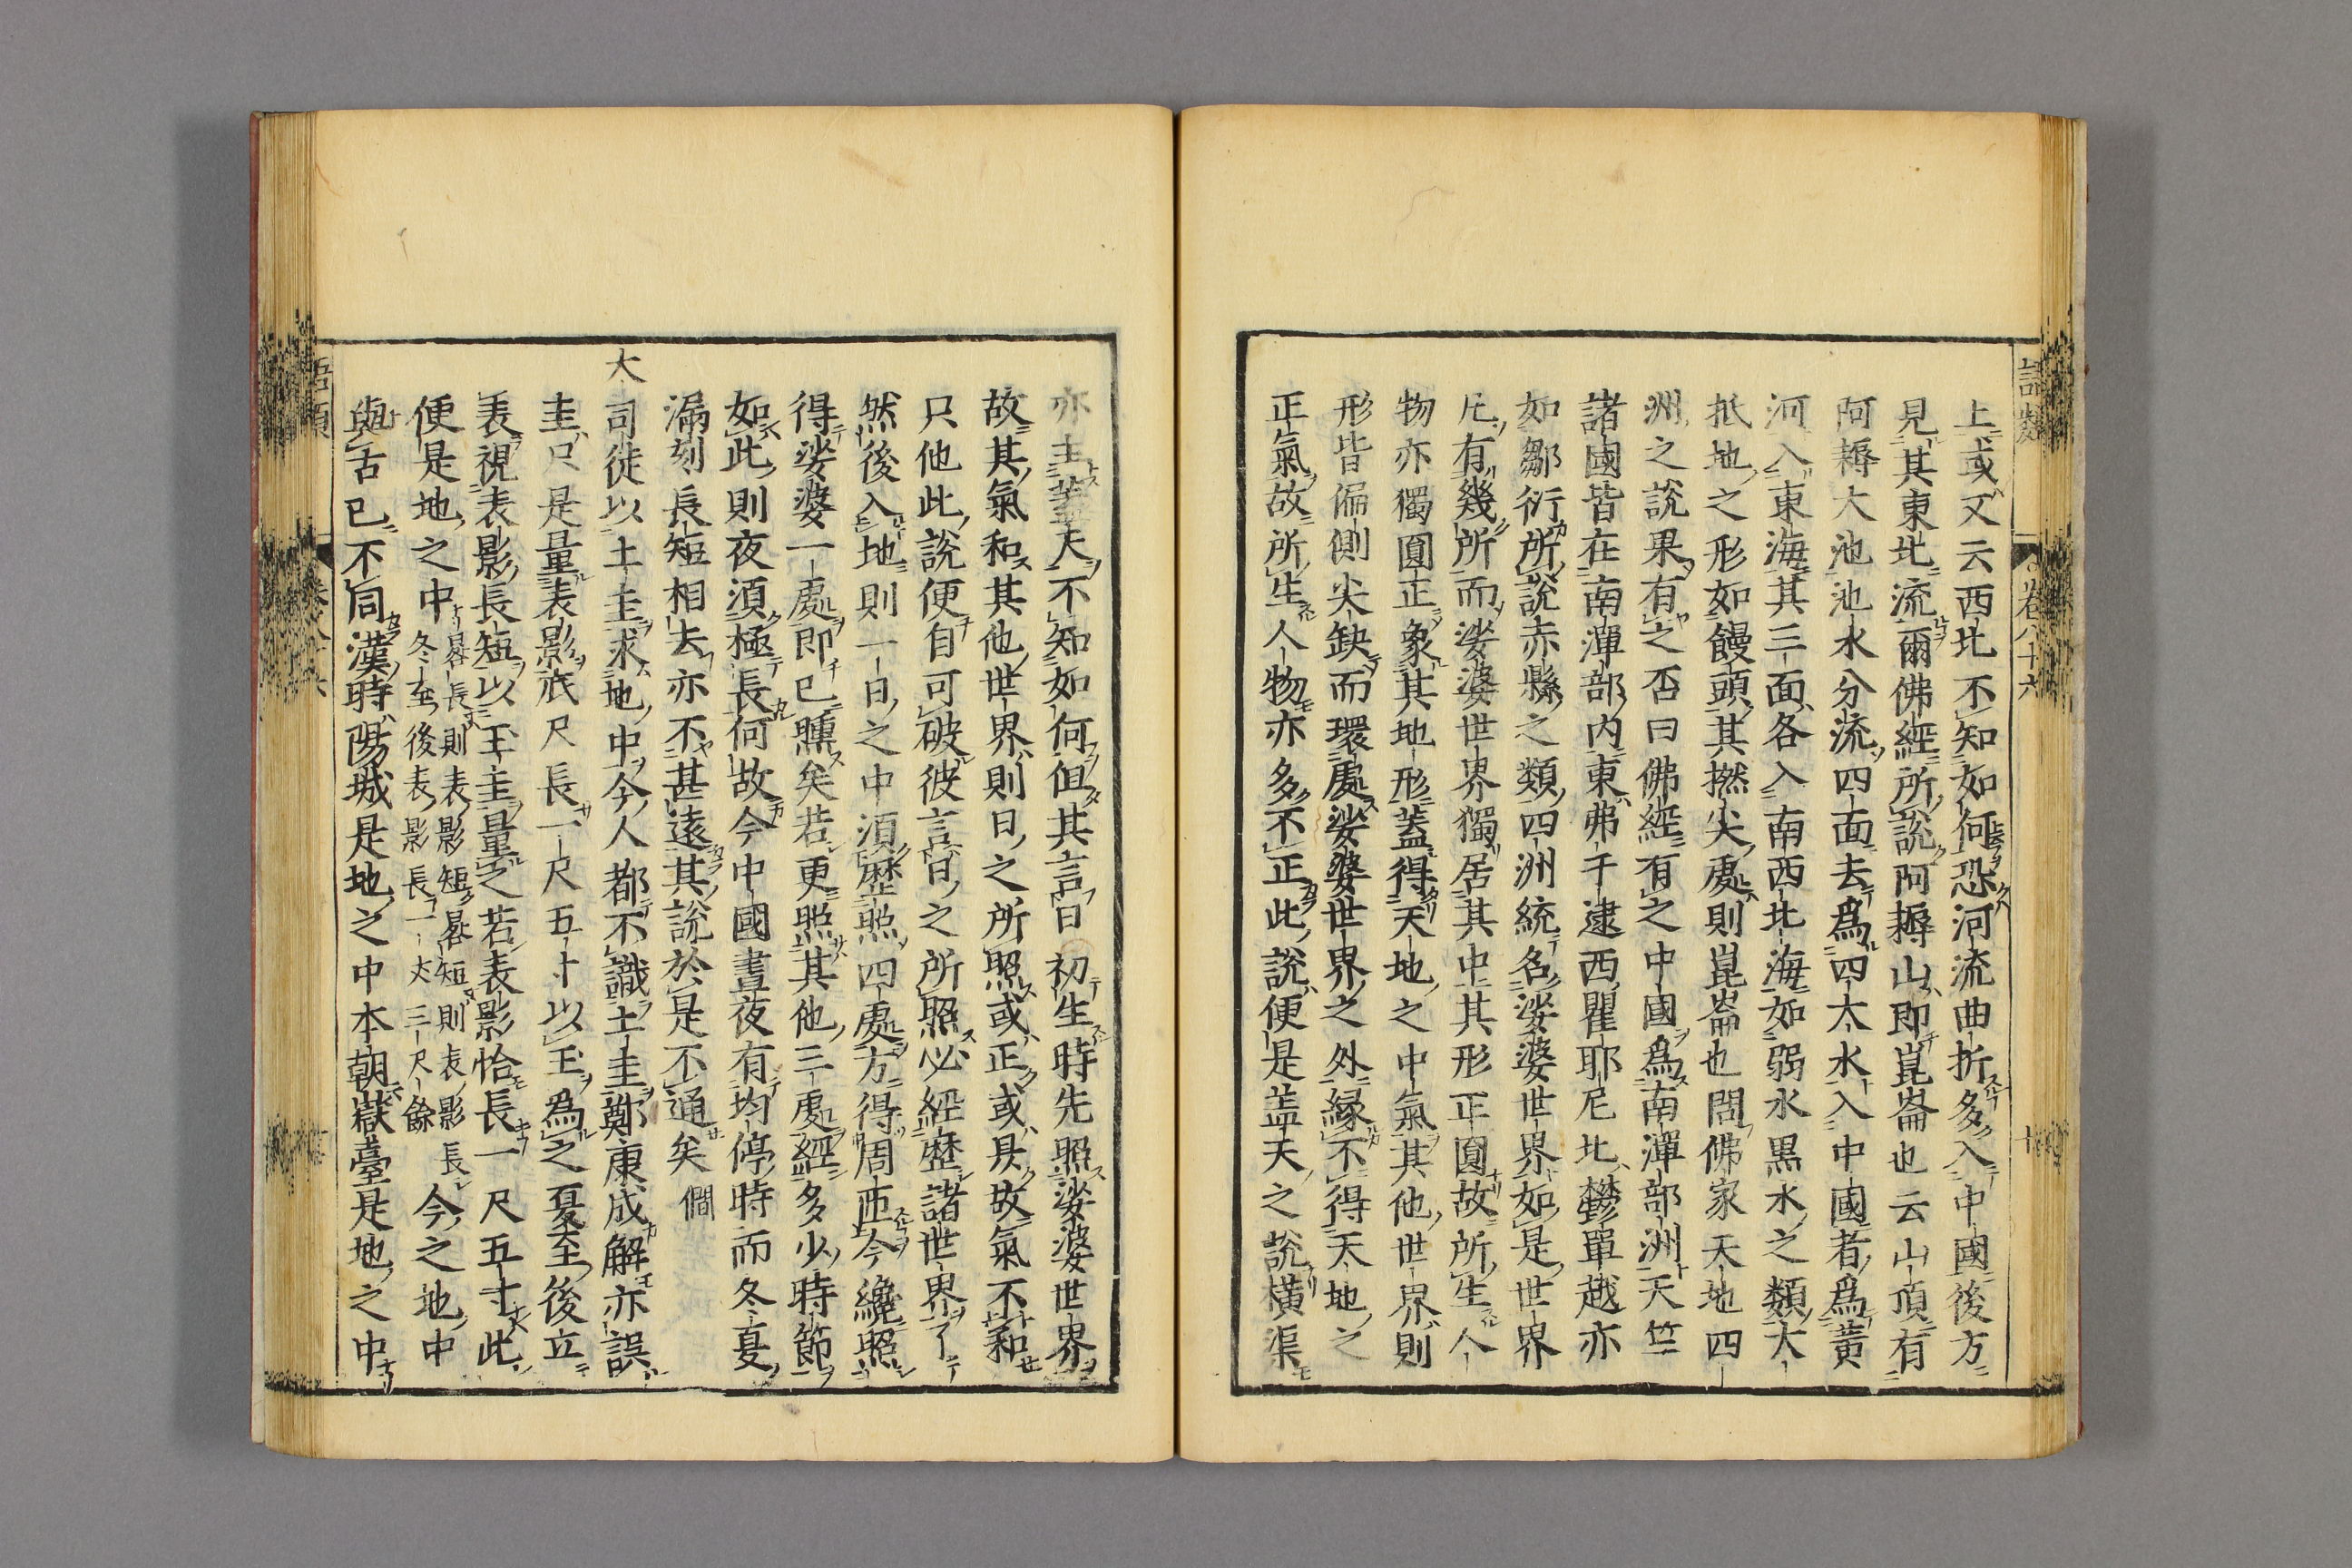 語類
卷八十六
十
上或又云西北不知如何恐河流曲折多入中國後方
見其東北流爾佛經所說阿耨山即崑崙也云山頂有
阿耨大池池水分流四面去爲四大水入中國者爲黃
河入東海其三面各入南西北海如弱水黑水之類大
抵地之形如饅頭其撚尖處則崑崙也問佛家天地四
洲之說果有之否曰佛經有之中國爲南潬部洲天竺
諸國皆在南潬部內東弗于逮西瞿耶尼北鬱單越亦
如鄒衍所說赤縣之類四洲統名娑婆世界如是世界
凡有幾所而娑婆世界獨居其中其形正圓故所生人
物亦獨圓正象其地形蓋得天地之中氣其他世界則
形皆偏側尖缺而環處娑婆世界之外緣不得天地之
正氣故所生人物亦多不正此說便是蓋天之說橫渠
亦主蓋天不知如何但其言曰初生時先照娑婆世界
故其氣和其他世界則日之所照或正或昃故氣不和
只他此說便自可破彼言日之所照必經歷諸世界了
然後入地則一日之中須歷照四處方得周匝今纔照
得娑婆一處即已曛矣若更照其他三處經多少時節
如此則夜須極長何故今中國晝夜有均停時而冬夏
漏刻長短相去亦不甚遠其說於是不通矣僩
大
司徒以土圭求地中今人都不識土圭鄭康成解亦誤
圭只是量表影底尺長一尺五寸以玉爲之夏至後立
表視表影長短以玉圭量之若表影恰長一尺五寸此
便是地之中晷長則表影短晷短則表影長
冬至後表影長一丈三尺餘今之地中
與古已不同漢時陽城是地之中本朝嶽臺是地之中
語類